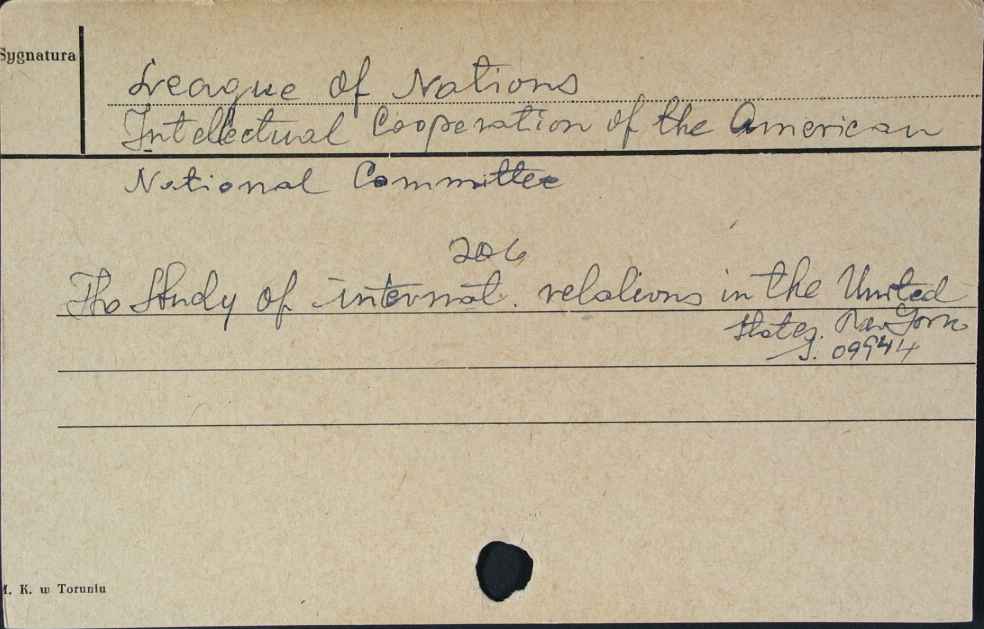 Sygnatura
League of Nations
Intellectual Cooperation of the American
National Committee
206
The Study of internat. relations in the United
States. New York
S. 09944
M. K. w Toruniu